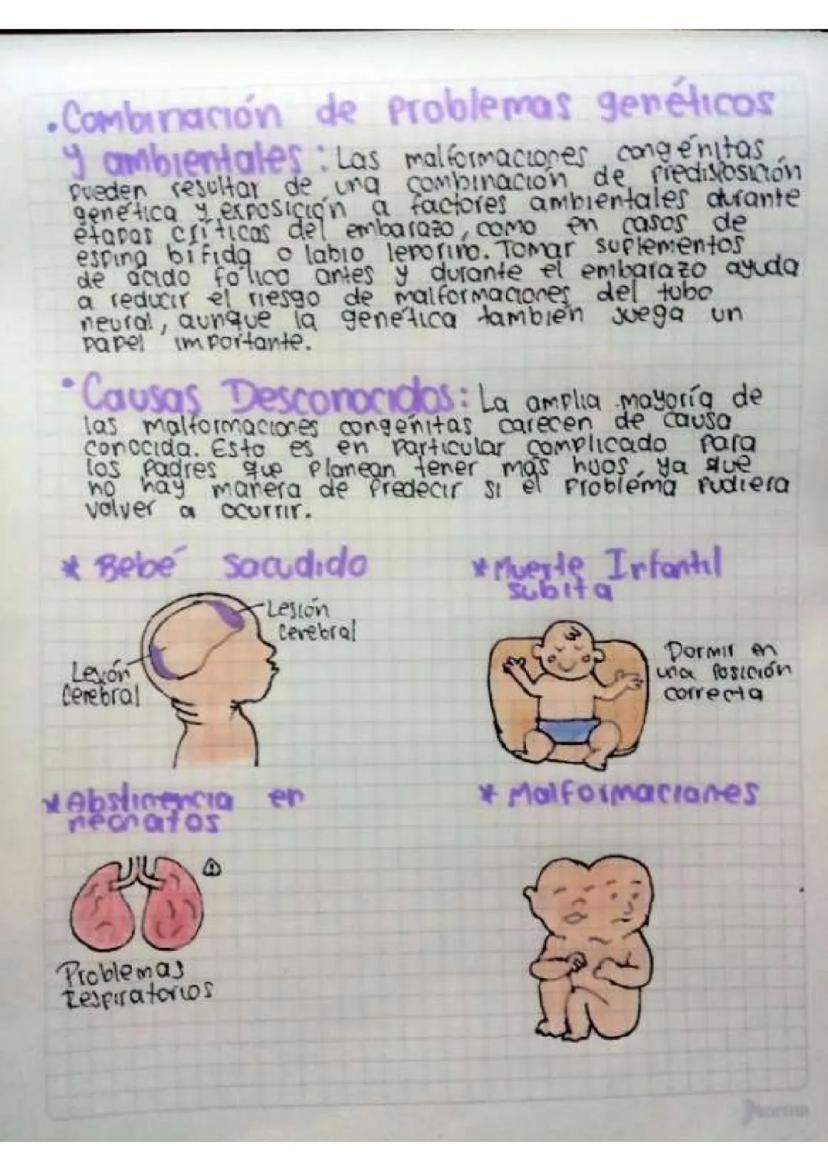 • Combinación de problemas genéticos
y ambientales: Las malformaciones congénitas
pueden resultar de una combinación de predisposición
genética y exposición a factores ambientales durante
etapas críticas del embarazo, como en casos de
espina bífida o labio leporino. Tomar suplementos
de ácido fólico antes y durante el embarazo ayuda
a reducir el riesgo de malformaciones del tubo
neural, aunque la genética también juega un
papel importante.
• Causas Desconocidas: La amplia mayoría de
las malformaciones congénitas carecen de causa
conocida. Esto es en particular complicado para
los padres que planean tener más hijos, ya que
no hay manera de predecir si el problema pudiera
volver a ocurrir.
* Bebé sacudido
Lesión
cerebral
Lesión
Cerebral
* Muerte Infantil
súbita
Dormir en
una posición
correcta
* Abstinencia en
neonatos
Problemas
respiratorios
* Malformaciones
Norma